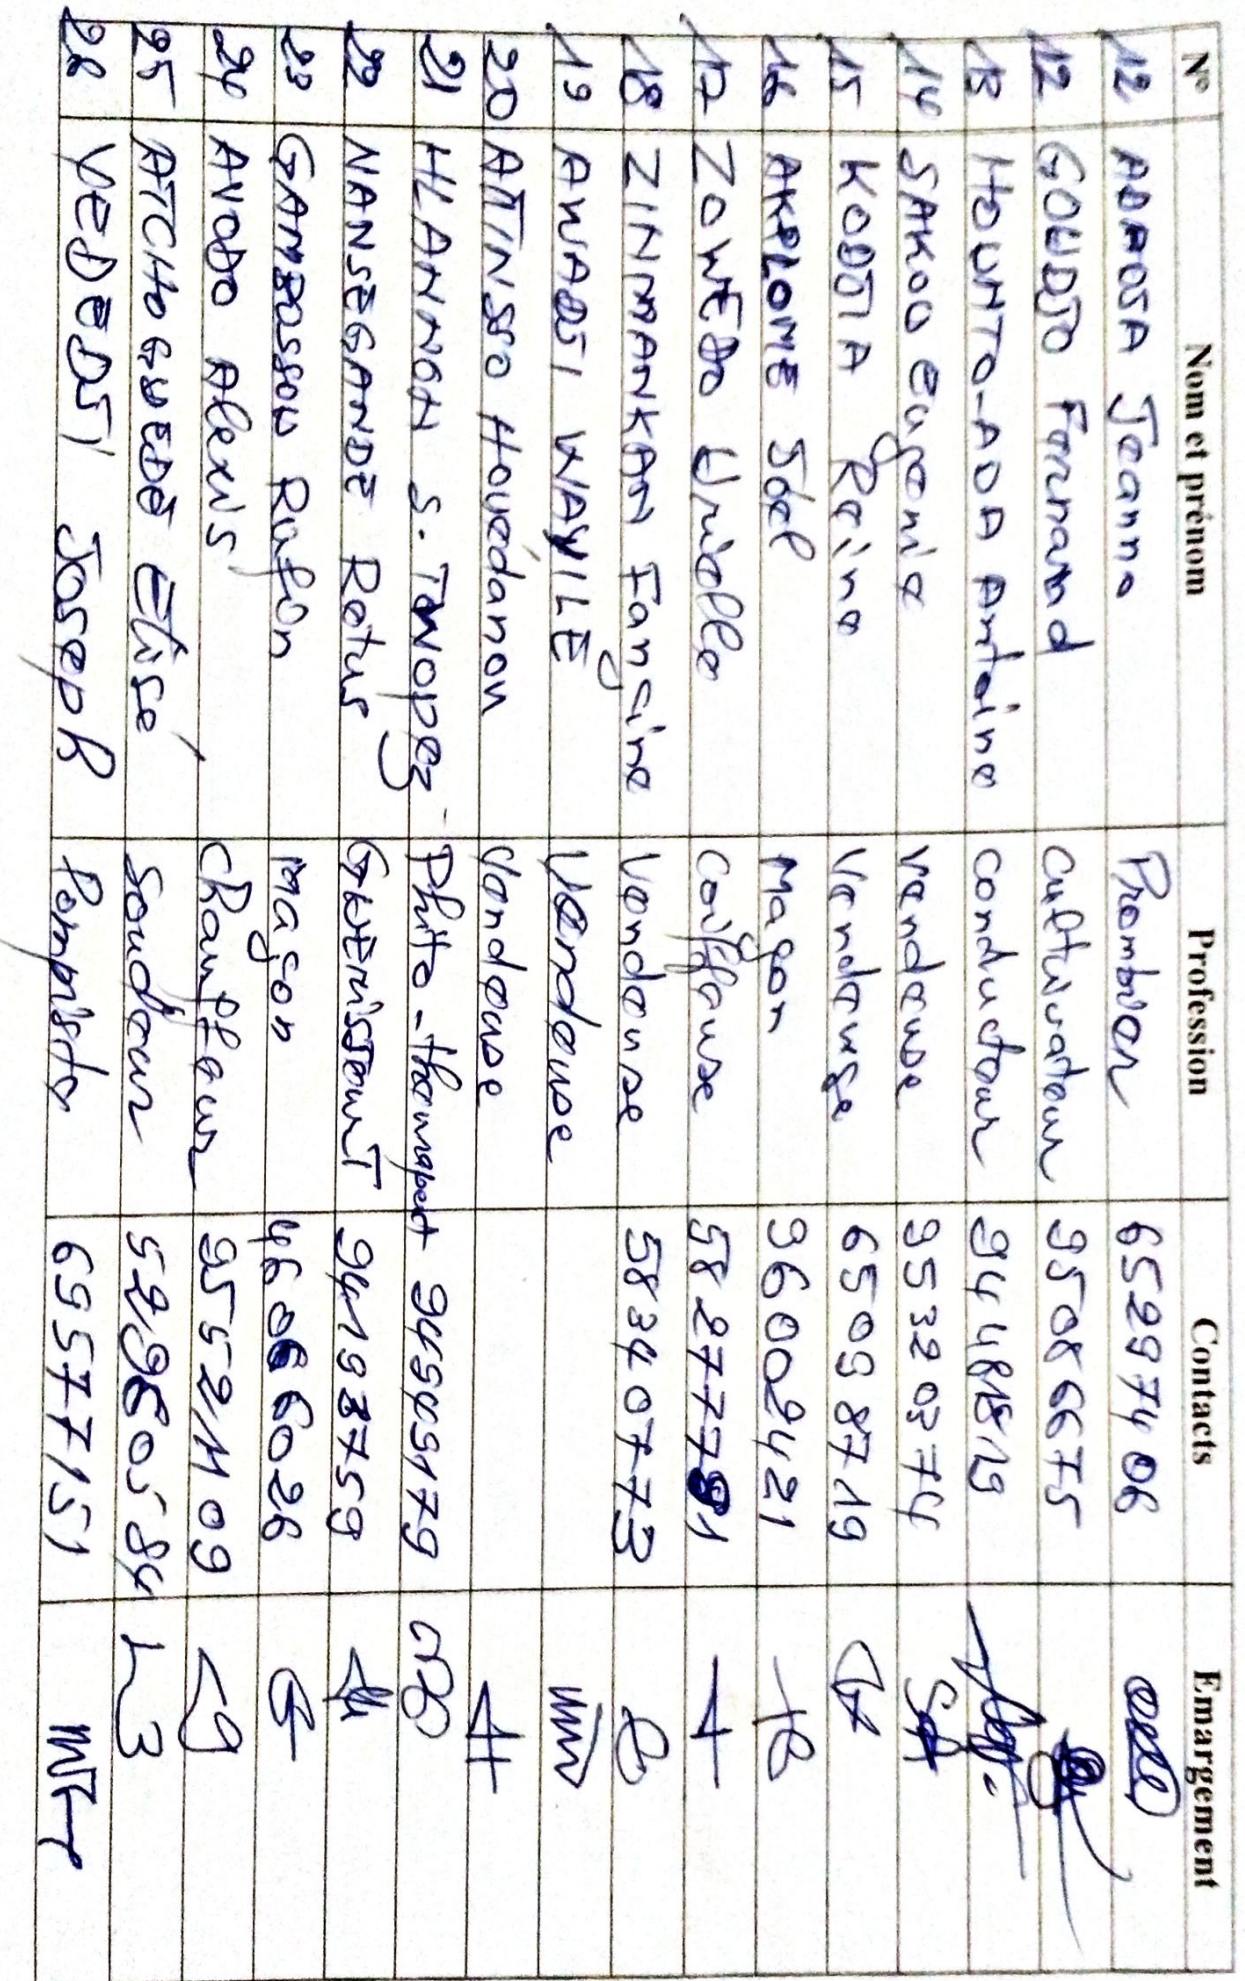 N° Nom et prénom Profession Contacts Emargement
12 ADADJA Jeanne Plombier 65297406
12 GOUDJO Fernand Cultivateur 95086675
13 HOUNTO-ADA Antoine Conducteur 94481819
14 SAKOU Eugenie vendeuse 95320374
15 KODJIA Reine Vendeuse 65098719
16 AKPLOME Joël Maçon 96002421
17 ZOWEDO Urielle Coiffeuse 58277791
18 ZINMANKAN Francine Vendeuse 58340773
19 AWADJI WAYILE Vendeuse
20 ATINSSO Houédanou Vendeuse
21 HLANNON S. Phyto-
22 NANSEGANDE Rotus 94193759
23 GANBOSSOU Rufin maçon 46066026
24 AVODO Alexis Chauffeur 95521109
25 ATCHOGUEDE Elisé Soudeur
26 VEDEDJI Joseph Pompiste 69577151